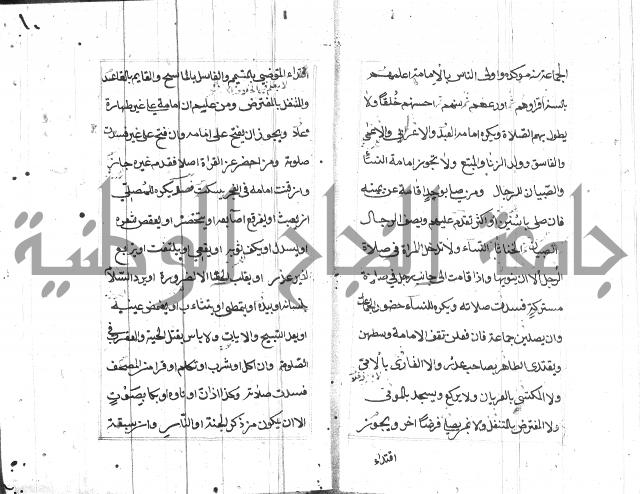 الجماعة سنة موكده واولى الناس بالامامة اعلمهم
بالسنة اقراوهم اورعهم اسنهم احسنهم خلقا ولا
يطول بهم الصلاة ويكره امامة العبد والاعرابي والاعمى
والفاسق وولد الزنا والمبتدع ولا تجوز امامة النسآ
والصبيان للرجال ومن صلى بواحد اقامه عن يمينه
فان صلى باثنين او اكثر تقدم عليهم ويصف الرجال
الصبيان الخناثا النساء ولا تدخل المراة في صلاة
الرجل الا ان ينويها واذا قامت الى جانب رجل في صلاة
مشتركة فسدت صلاته ويكره للنساء حضور الجماعات
وان يصلين جماعة فان فعلن تقف الامامة وسطهن
ولا يقتدى الطاهر بصاحب عذر ولا القارى بالامي
ولا المكتسي بالعريان ولا يركع ويسجد بالمومي
ولا المفترض بالمتنفل ولا من يصلي فرضا اخر ويجوز
اقتداء
١٠
اقتداء المتوضي بالمتيمم والغاسل بالماسح والقايم بالقاعد
والمتنفل بالمفترض ومن علم ان امامه على غير طهارة
اعاد ويجوز ان يفتح على امامه وان فتح على غيره فسدت
صلوته ومن احصر عن القراة اصلا فقدم غيره جاز
وان قنت امامه في الفجر يسكت فصل يكره للمصلي
ان يعبث او يفرقع اصابعه او يتخصر او يعقص شعره
او يسدل ثوبه او يقعي او يلتفت او يتربع
لغير عذر او يقلب الحصا الا لضرورة او يرد السلام
بلسانه او بيده او يتمطى او يتثاءب او يغمض عينيه
او يعد التسبيح والايات ولا باس بقتل الحية والعقرب في
الصلوة وان اكل او شرب او تكلم او قرا من المصحف
فسدت صلاته وكذا اذا ان او تاوه او بكا بصوت
الا ان يكون من ذكر الجنة او النار وان سبقه
جامعة النجاح الوطنية